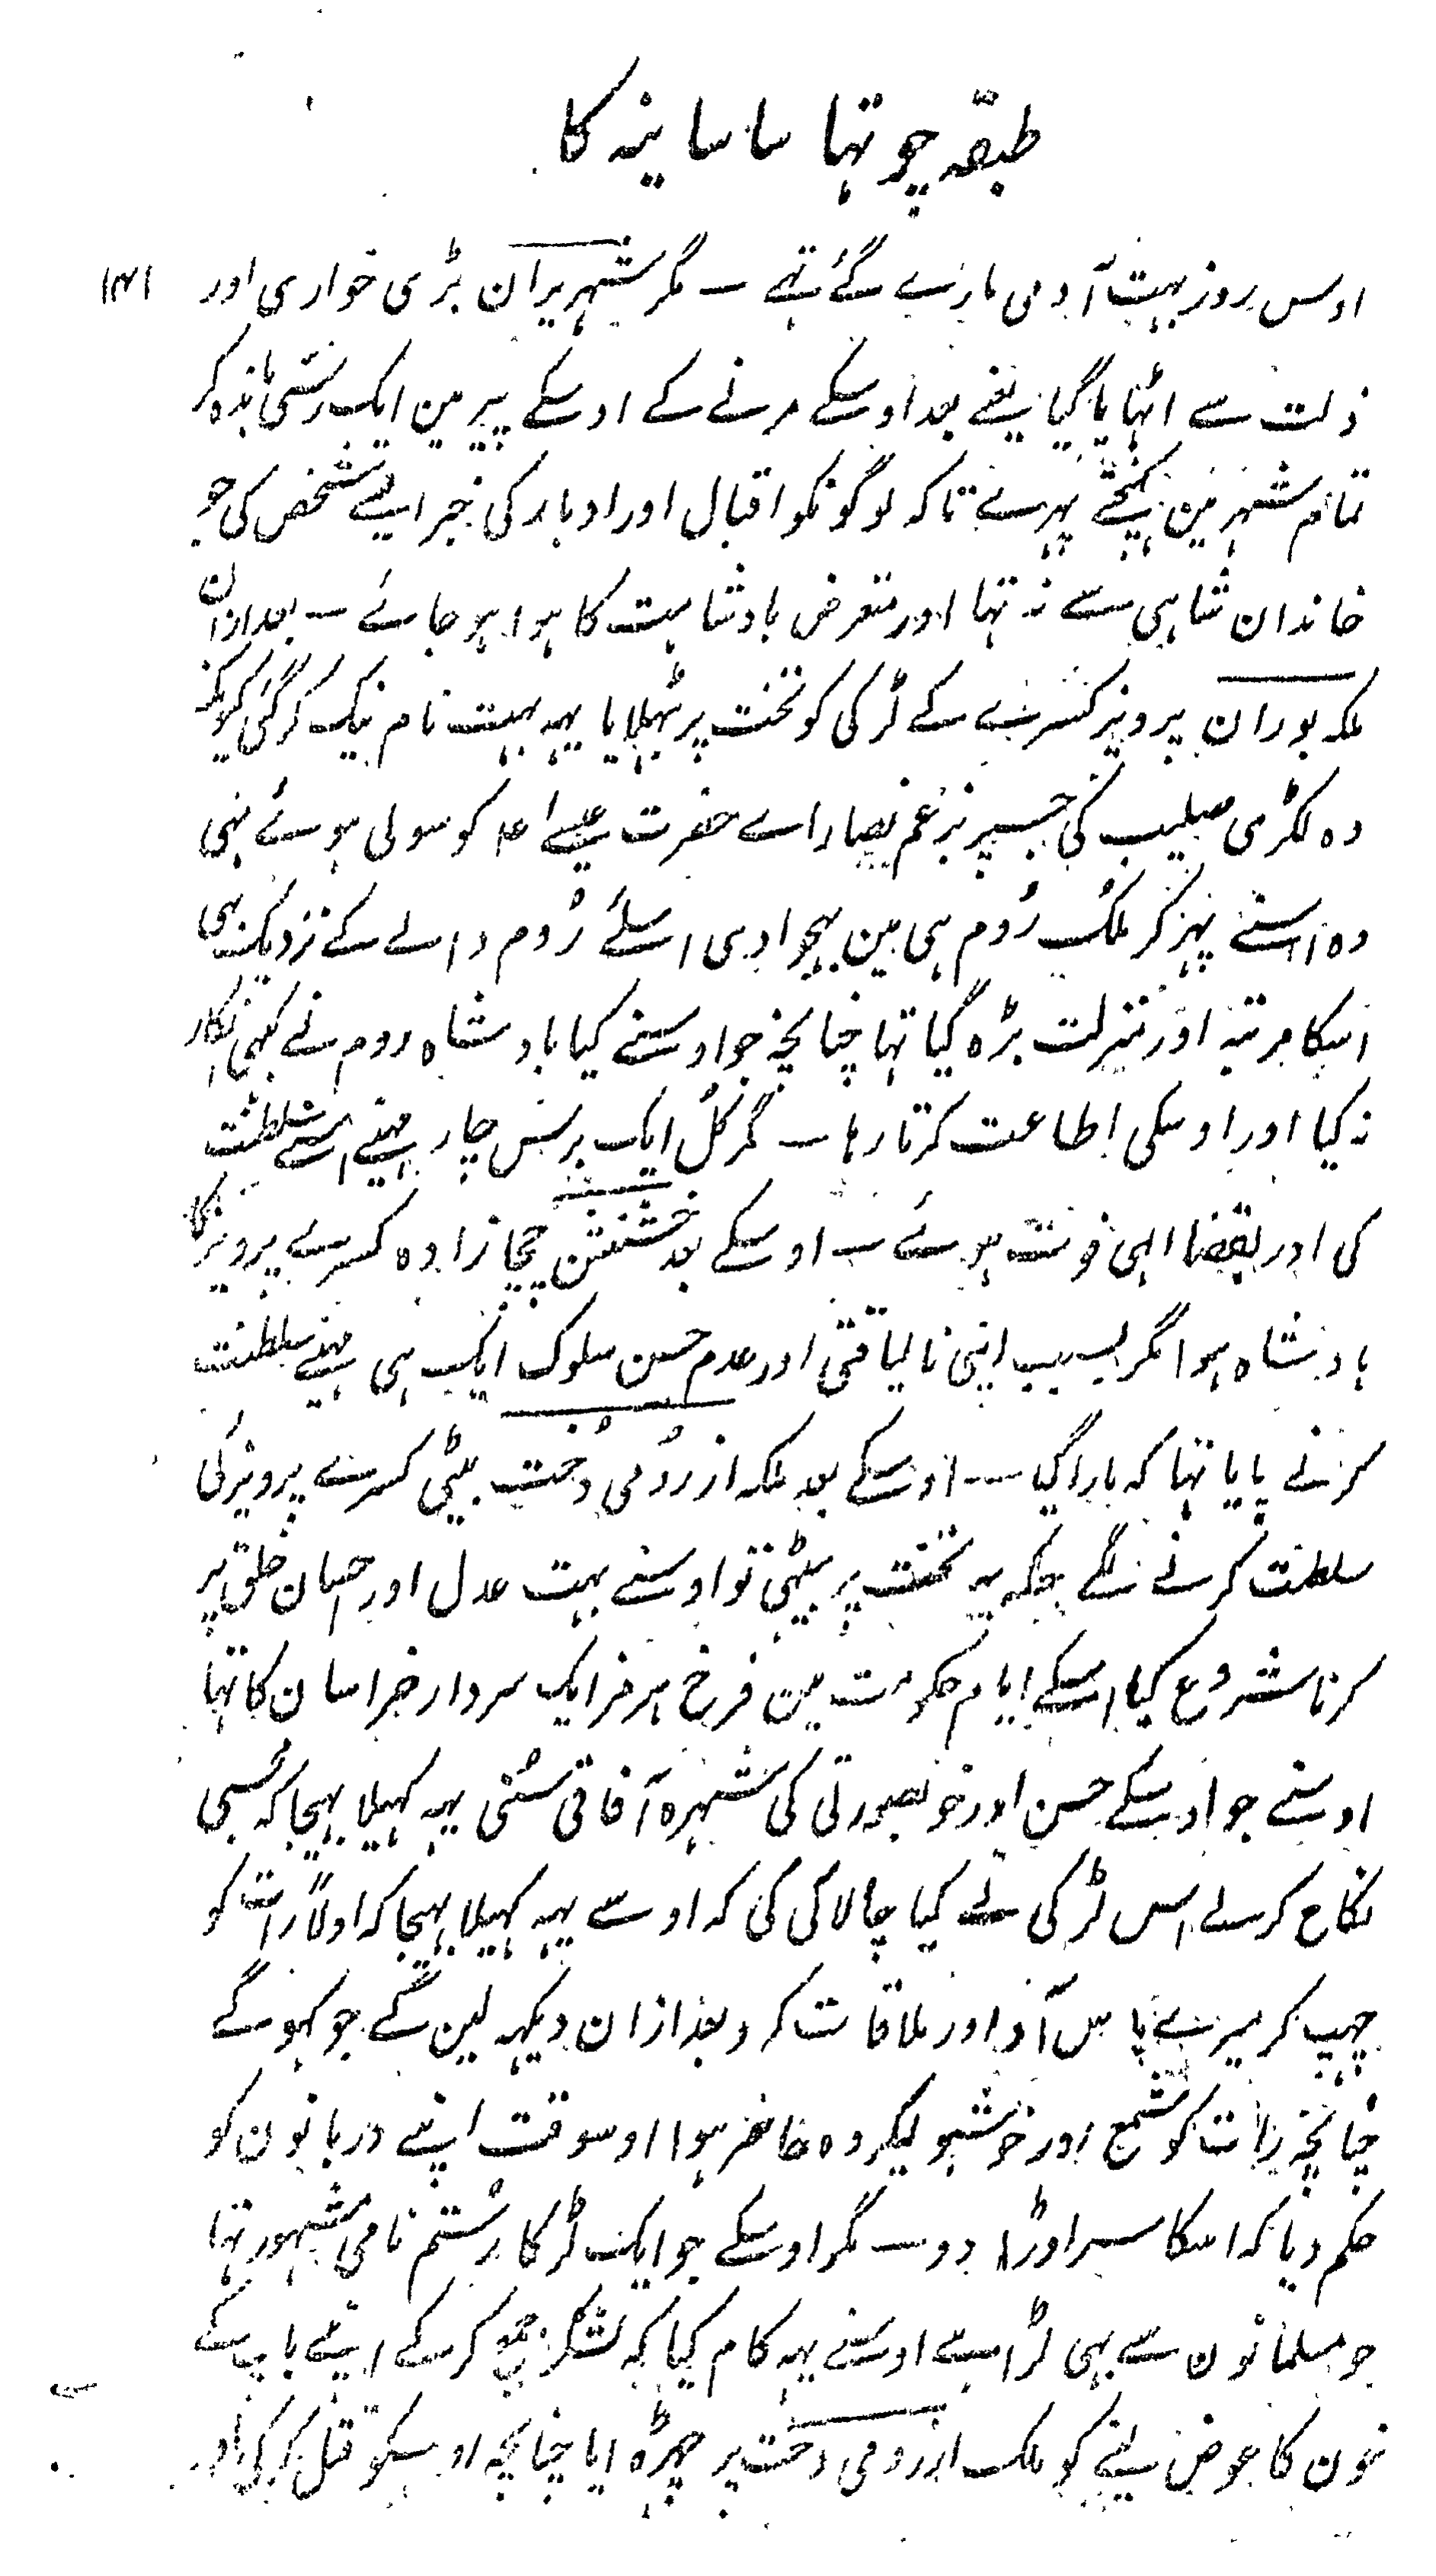 طبقہ چوتہا ساسانیہ کا
۱۴۱
اوس روز بہت آدمی مارے گئے تہے ۔ مگر شہریران بڑی خواری اور
ذلت سے اٹہایا گیا یعنے بعد اوسکے مرنے کے اوسکے پیر مین ایک رسّی باندہ کر
تمام شہر مین کہینچتے پہرے تاکہ لوگونکو اقبال اور ادبار کی خبر ایسے شخص کی جو
خاندان شاہی سے نہ تہا اور متعرض بادشاہت کا ہوا ہو جائے ۔ بعد ازان
ملکہ بوران پرویز کسرے کے لڑکی کو تخت پر بٹہلایا یہہ بہت نام نیک کر گئی کیونکہ
وہ لکڑی صلیب کی جسپر بزعم نصاراے حضرت عیسے اعہ کو سولی ہوئے تہی
وہ اسنے پہیر کر ملک رُوم ہی مین بہجوا دی اسلئے رُوم والے کے نزدیک بہی
اسکا مرتبہ اور منزلت بڑہ گیا تہا چنانچہ جو اوسنے کیا بادشاہ روم نے کبہی انکار
نہ کیا اور اوسکی اطاعت کرتا رہا ۔ مگر کُل ایک برس چار مہینے اسنے سلطنت
کی اور بقضا الہی فوت ہوئے ۔ اوسکے بعد خشنشن چچازادہ کسرے پرویز کا
بادشاہ ہوا مگر بسبب اپنی نالیاقتی اور عدم حسن سلوک ایک ہی مہینے سلطنت
کرنے پایا تہا کہ مارا گیا ۔ اوسکے بعد ملکہ ازرُومی دُخت بیٹی کسرے پرویز کی
سلطنت کرنے لگے جبکہ یہ تخت پر بیٹہی تو اوسنے بہت عدل اور احسان خلق پر
کرنا شروع کیا اسکے ایام حکومت مین فرخ ہرمز ایک سردار خراسان کا تہا
اوسنے جو اوسکے حسن اور خوبصورتی کی شہرہ آفاقی سُنی یہہ کہیلا بہیجا کہ مجسی
نکاح کرلے اس لڑکی نے کیا چالاکی کی کہ اوسے یہہ کہیلا بہیجا کہ اولاً رات کو
چہپ کر میرے پاس آو اور ملاقات کرو بعد ازان دیکہہ لین گے جو کہو گے
چنانچہ رات کو شمع اور خوشبو لیکر وہ حاضر ہوا اوسوقت اپنے دربانون کو
حکم دیا کہ اسکا سر اوڑا دو ۔ مگر اوسکے جو ایک لڑکا رستم نامی مشہور تہا
جو مسلمانون سے بہی لڑا ہے اوسنے یہہ کام کیا کہ لشکر جمع کرکے اپنے باپ کے
خون کا عوض لینے کو ملک ازرومی دخت پر چہڑہ ایا چنانچہ اوسکو قتل کر کی اور